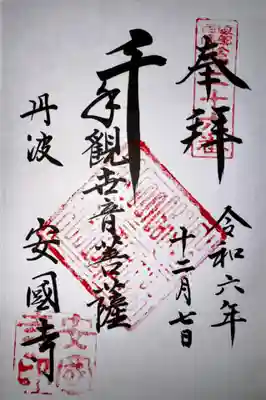 奉拝
令和六年
十二月七日
千手観世音菩薩
丹波 安國寺